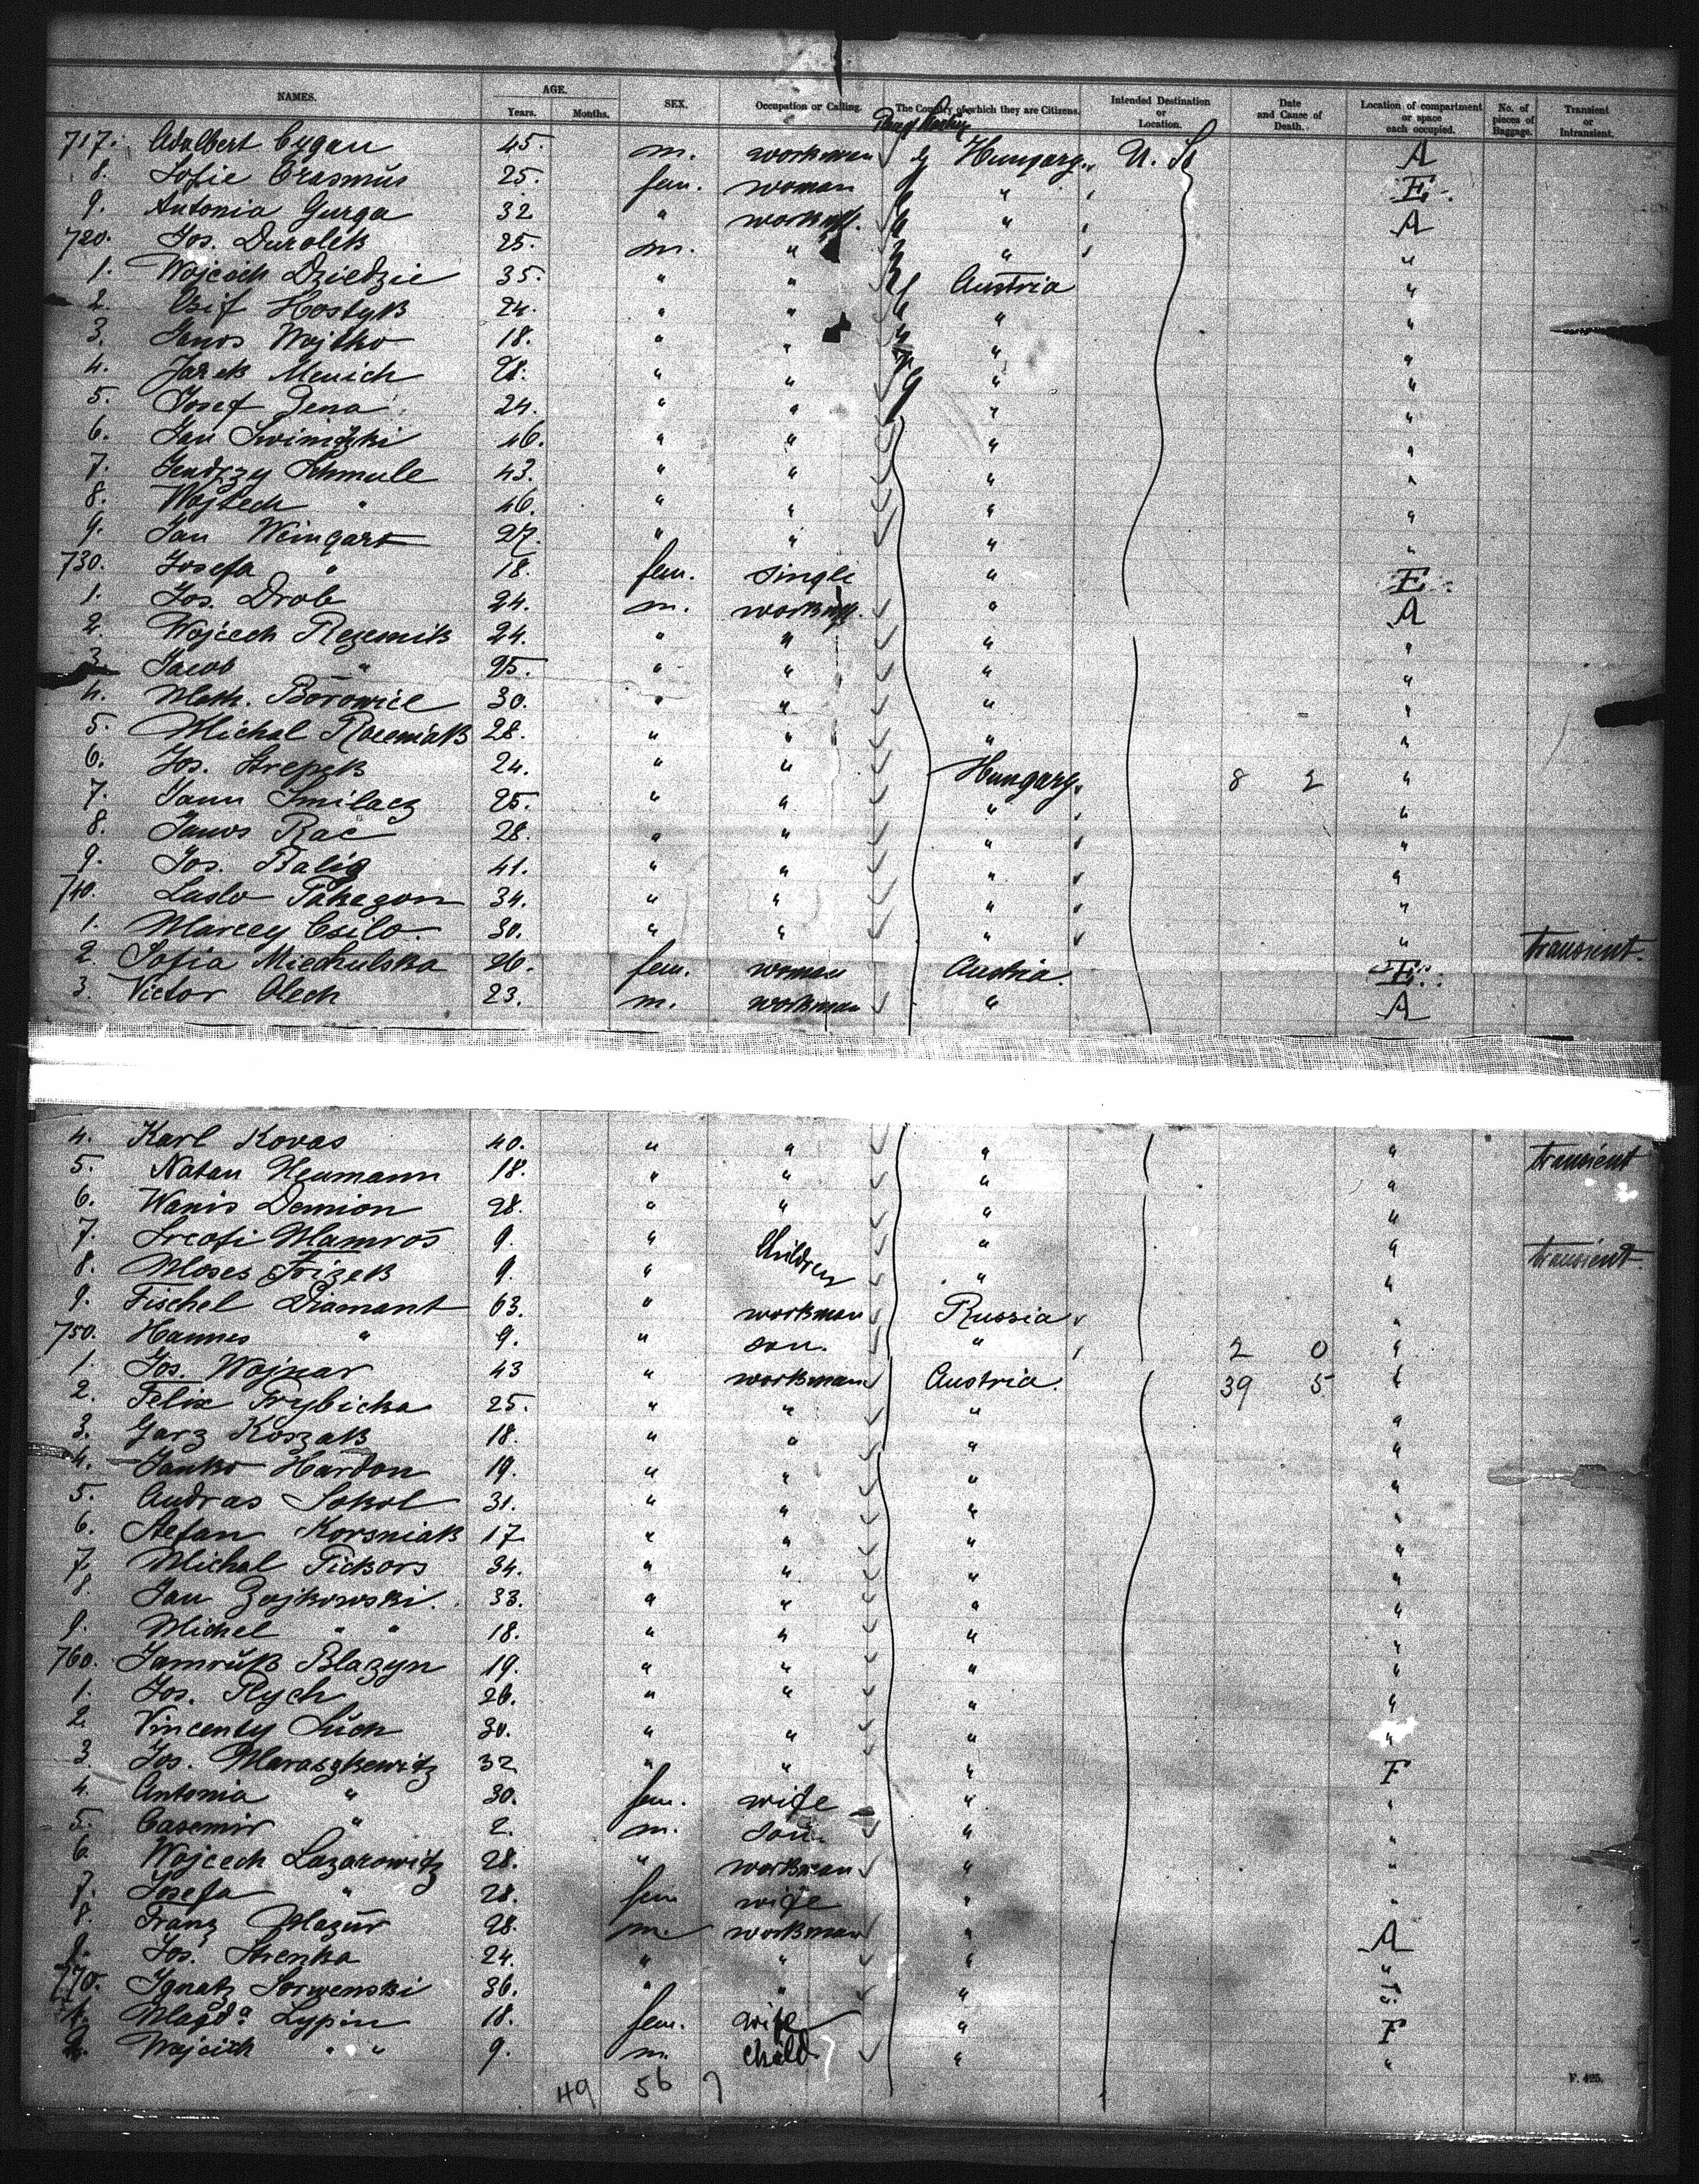 NAMES. AGE. Years. Months. SEX. Occupation or Calling. The Country of which they are Citizens. Intended Destination or Location. Date and Cause of Death. Location of compartment or space each occupied. No. of pieces of Baggage. Transient or Intransient.
717. Adalbert Cygan 45. m. workman Hungary. U. S. A
8. Sofie Erasmus 25. fem. woman " E.
9. Antonia Gurga 32 " " A
720. Jos. Durolek 25. m. " " "
1. Wojciech Dziedzic 35. " " Austria "
2. Osif Hostyk 24. " " " "
3. Janos Wojtko 18. " " " "
4. Jarek Menich 28. " " " "
5. Josef Zena 24. " " " "
6. Jan 46. " " " "
7. Jendrzy Schmule 43. " " " "
8. Wojtech " 46. " " " "
9. Jan Weingart 27. " " " "
730. Josefa " 18. fem. single " E.
1. Jos. Drob 24. m. " A
2. Wojcech 24. " " " "
3. Jacob " 25. " " " "
4. Math. Borowicz 30. " " " "
5. Michal 28. " " " "
6. Jos. Strepek 24. " " Hungary. 8 2 "
7. Janu Smilacz 25. " " " "
8. Janos Rac 28. " " " "
9. Jos. Balig 41. " " " "
740. Laslo 34. " " " "
1. Marcey Csilo. 30. " " " " transient.
2. Sofia Miechulska 26. fem. woman Austria. E.
3. Victor Olech 23. m. workman " A
4. Karl Kovas 40. " " " " transient
5. Natan Neumann 18. " " " "
6. Wanis Demion 28. " " " "
7. Mamros 9. " Children " " transient.
8. Moses 9. " " "
9. Fischel Diamant 63. " workman Russia "
750. Hannes " 9. " son. " 2 0 "
1. Jos. Wojnar 43 " workman Austria. 39 5 "
2. Felix Trybicka 25. " " " "
3. Garz Koszak 18. " " " "
4. Janko Hardon 19. " " " "
5. Andras Sokol 31. " " " "
6. Stefan Korsniak 17 " " " "
7. Michal Tickors 34. " " " "
8. Jan Zajkowski. 33. " " " "
9. Michel " " 18. " " " "
760. Blazyn 19. " " " "
1. Jos. Rych 26. " " " "
2. Vincenty Such 30. " " " "
3. Jos. Maraszkewitz 32 " " " F
4. Antonia " 30. fem. wife " "
5. Casemir " 2. m. son. " "
6. Wojcech Lazarowitz 28. " workman " "
7. Josefa " 28. fem wife " "
8. Franz Mazur 28. m. workman " A
9. Jos. Strenka 24. " " " "
770. Ignatz Sorwenski 36. " " " "
1. Magda Lypin 18. fem. wife " F
2. Wojcich " " 9. m. child. " "
49 56 7
F. 425.